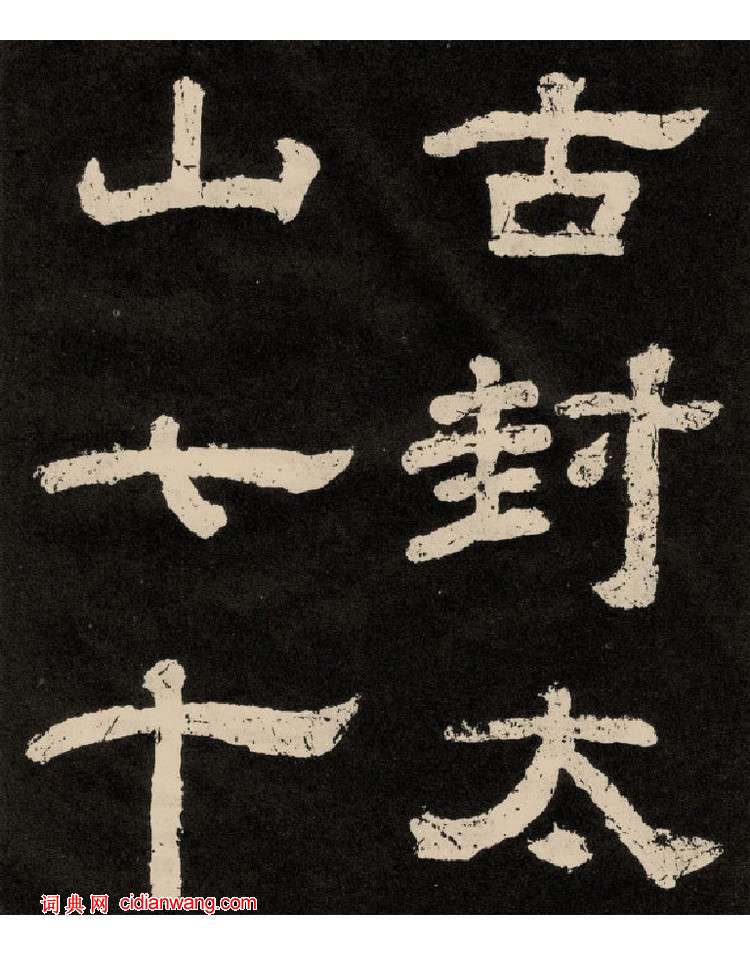 古封太
山七十
词典网 cidianwang.com